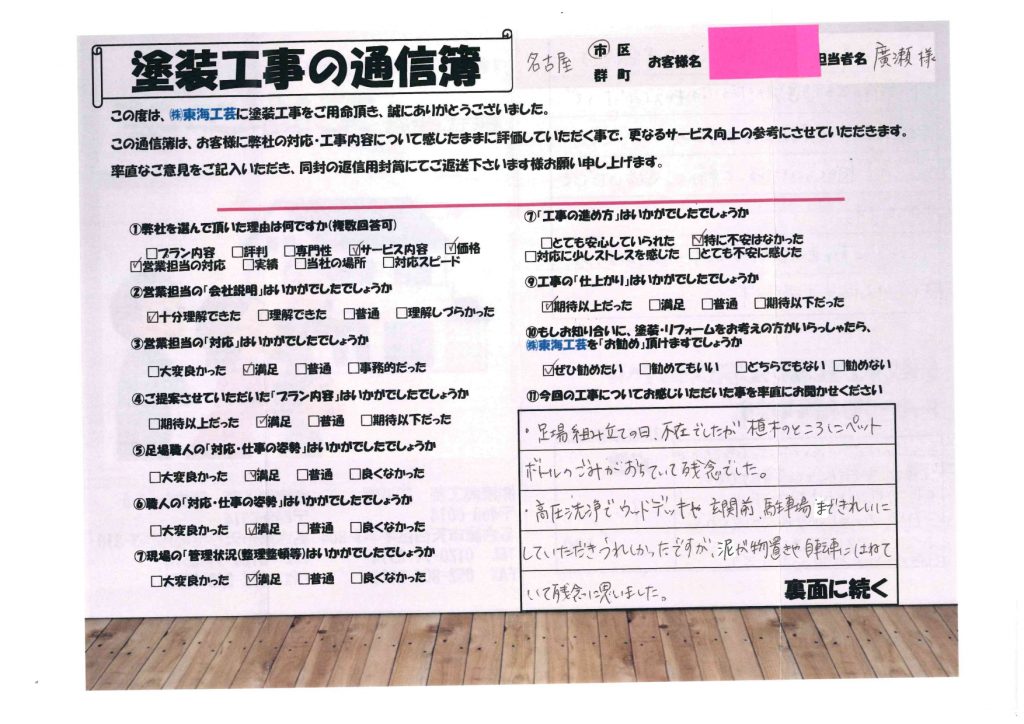 塗装工事の通信簿
名古屋 市 区 群 町 お客様名 担当者名 廣瀬 様
この度は、㈱東海工芸に塗装工事をご用命頂き、誠にありがとうございました。
この通信簿は、お客様に弊社の対応・工事内容について感じたままに評価していただく事で，更なるサービス向上の参考にさせていただきます。
率直なご意見をご記入いただき、同封の返信用封筒にてご返送下さいます様お願い申し上げます。
①弊社を選んで頂いた理由は何ですか(複数回答可)
□プラン内容 □評判 □専門性 ☑サービス内容 ☑価格
☑営業担当の対応 □実績 □当社の場所 □対応スピード
②営業担当の「会社説明」はいかがでしたでしょうか
☑十分理解できた □理解できた □普通 □理解しづらかった
③営業担当の「対応」はいかがでしたでしょうか
□大変良かった ☑満足 □普通 □事務的だった
④ご提案させていただいた「プラン内容」はいかがでしたでしょうか
□期待以上だった ☑満足 □普通 □期待以下だった
⑤足場職人の「対応・仕事の姿勢」はいかがでしたでしょうか
□大変良かった ☑満足 □普通 □良くなかった
⑥職人の「対応・仕事の姿勢」はいかがでしたでしょうか
□大変良かった ☑満足 □普通 □良くなかった
⑦現場の「管理状況(整理整頓等)はいかがでしたでしょうか
□大変良かった ☑満足 □普通 □良くなかった
⑦「工事の進め方」はいかがでしたでしょうか
□とても安心していられた ☑特に不安はなかった
□対応に少しストレスを感じた □とても不安に感じた
⑨工事の「仕上がり」はいかがでしたでしょうか
☑期待以上だった □満足 □普通 □期待以下だった
⑩もしお知り合いに、塗装・リフォームをお考えの方がいらっしゃたら、
㈱東海工芸を「お勧め」頂けますでしょうか
☑ぜひ勧めたい □勧めてもいい □どちらでもない □勧めない
⑪今回の工事についてお感じいただいた事を率直にお聞かせください
・足場組み立ての日、不在でしたが 植木のところにペット
ボトルのごみがおちていて残念でした。
・高圧洗浄でウッドデッキや玄関前、駐車場まできれいに
していただきうれしかったですが、泥が物置きや自転車にはねて
いて残念に思いました。
裏面に続く